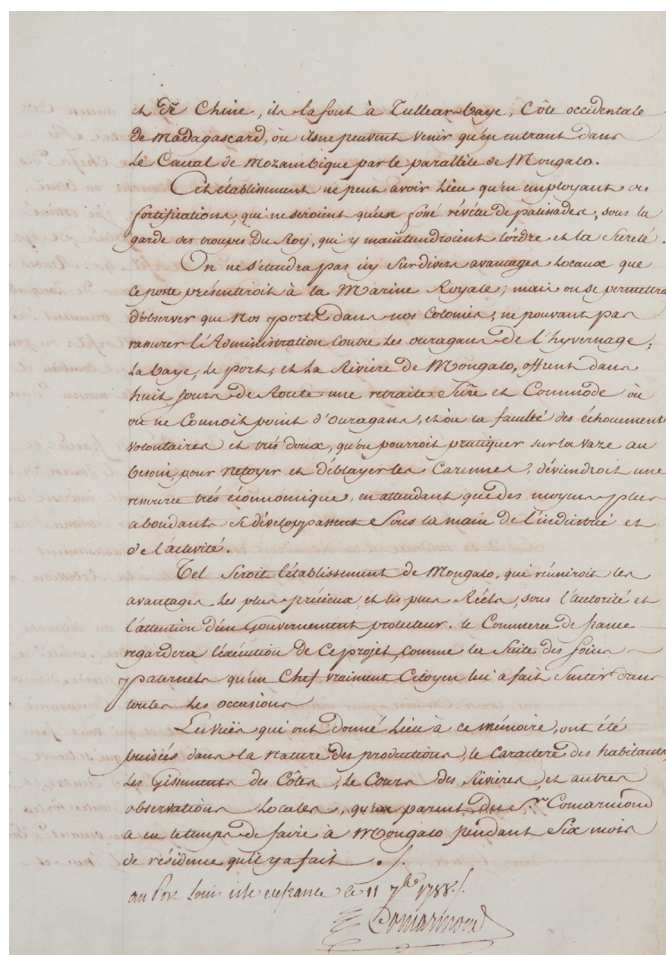 et de Chine, ils la font à Tullear-baye, Côte occidentale
de Madagascard, où ils ne peuvent venir qu'en entrant dans
Le Canal de Mozambique par le parallèle de Mougalo.
Cet établissement ne peut avoir Lieu qu'en employant des
fortifications, qui ne seroient qu'un fossé révêtu de palisades, sous la
garde des troupes du Roy, qui y maintiendroient l'ordre et la sûreté.
On ne s'étendra pas icy sur divers avantages locaux que
ce poste présenteroit à la Marine Royale; mais on se permettra
d'observer que nos ports dans nos Colonies, ne pouvant pas
rassurer l'Administration contre les ouragans de l'hyvernage;
La baye, le port, et la Rivière de Mougalo, offrent dans
huit jours de Route une retraite sûre et Commode où
on ne Connoit point d'ouragans, et où la faculté des échouements
volontaires et très doux, qu'on pourroit pratiquer sur la vaze au
besoin, pour netoyer et déblayer les Carennes, dévindroit une
ressource très économique, en attendant que des moyens plus
abondants se développassent sous la main de l'industrie et
de l'activité.
Tel seroit l'établissement de Mougalo, qui réuniroit les
avantages les plus précieux, et les plus Réels, sous l'autorité et
l'attention d'un Gouvernement protecteur. le Commerce de france
regardera l'éxécution de Ce projet, comme la suite des soins
paternels qu'un Chef vraiment Citoyen lui a fait sentir dans
toutes les occasions
Les vües qui ont donné Lieu à ce mémoire, ont été
puisées dans la Nature des productions, le Caractère des habitants,
Les Gissments des Côtes, le Cours des Rivières, et autres
observations Locales, qu'un parent du Sr. Comarmond
a eu le temps de faire à Mougalo pendant Six mois
de résidence qu'il y a fait ./.
au Port Louis isle de france le 11 7bre 1788./.
Comarmond